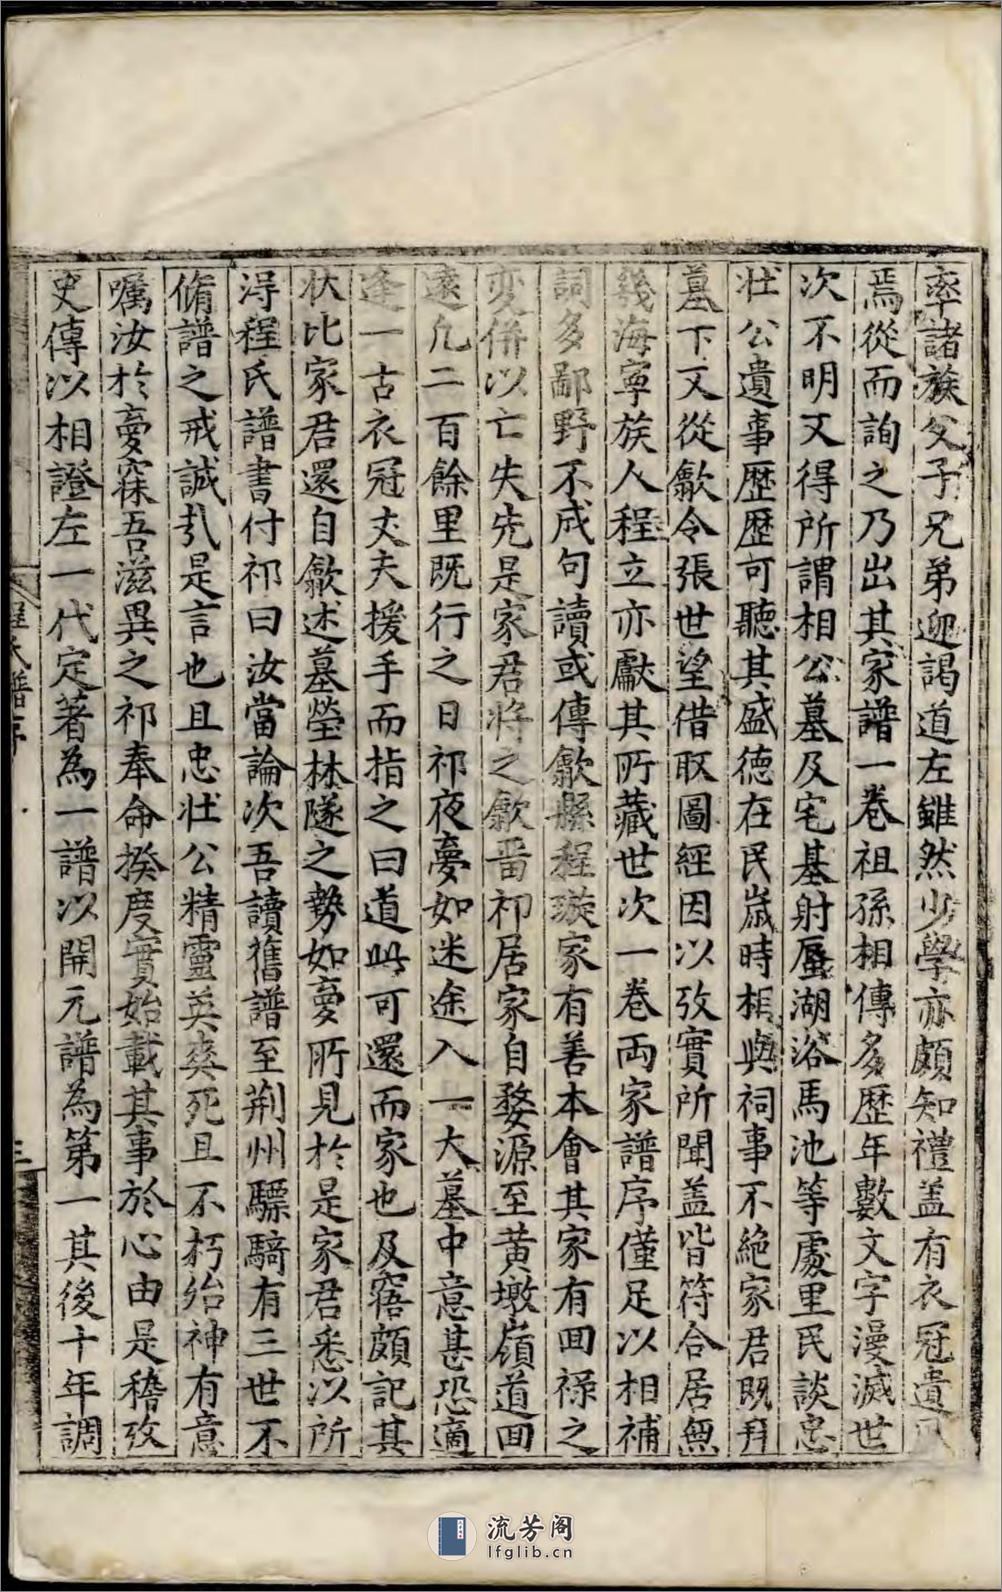 率諸族父子兄弟迎謁道左雖然少學亦頗知禮盖有衣冠遺風
焉從而詢之乃出其家譜一卷祖孫相傳多歷年數文字漫滅世
次不明又得所謂相公墓及宅基射蜃湖浴馬池等處里民談忠
壯公遺事歷歷可聽其盛德在民歲時相與祠事不絶家君既拜
墓下又從歙令張世望借取圖經因以攷實所聞盖皆符合居無
幾海寧族人程立亦獻其所藏世次一卷両家譜序僅足以相補
詞多鄙野不成句讀或傳歙縣程璇家有善本會其家有囬祿之
変併以亡失先是家君將之歙畱祁居家自婺源至黄墩嶺道囬
遠凢二百餘里既行之日祁夜夢如迷途入一大墓中意甚恐適
逢一古衣冠丈夫援手而指之曰道此可還而家也及寤頗記其
状比家君還自歙述墓塋林隧之勢如夢所見於是家君悉以所
淂程氏譜書付祁曰汝當論次吾讀舊譜至荆州驃騎有三世不
脩譜之戒誠㢤是言也且忠壯公精靈英爽死且不朽殆神有意
嘱汝於夢寐吾滋異之祁奉命揆度實始載其事於心由是稽攷
史傳以相證左一代定著為一譜以開元譜為第一其後十年調
程氏譜序
三
流芳阁
lfglib.cn